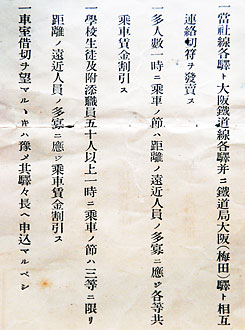 一當社線各驛ト大阪鐵道線各驛并ニ鐵道局大阪(梅田)驛ト相互
連絡切符ヲ發賣ス
一多人數一時ニ乘車ノ節ハ距離ノ遠近人員ノ多寡ニ應ジ各等共
乘車賃金割引ス
一學校生徒及附添職員五十人以上一時ニ乘車ノ節ハ三等ニ限リ
距離ノ遠近人員ノ多寡ニ應ジ乘車賃金割引ス
一車室借切ヲ望マルヽ𪜈ハ豫メ其驛々長ヘ申込マルベシ